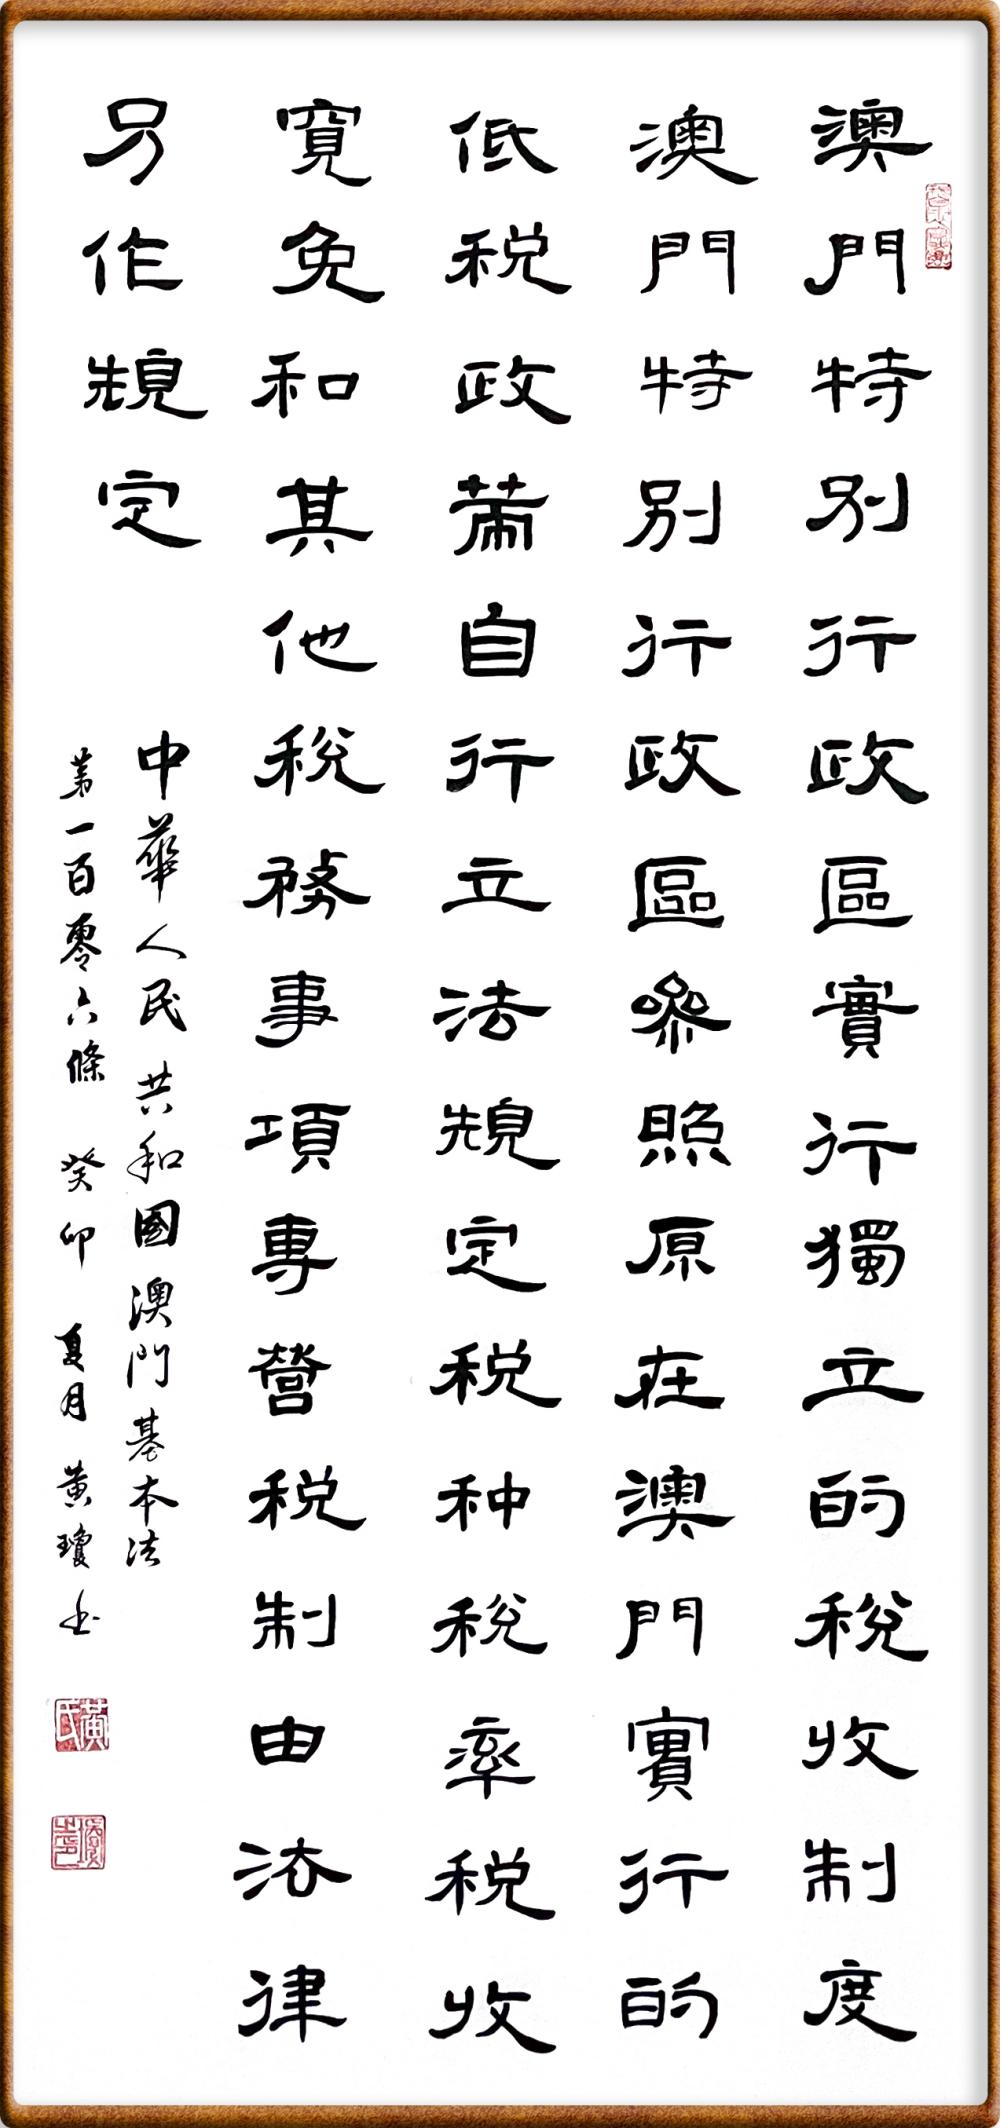 澳門特別行政區實行獨立的稅收制度
澳門特別行政區參照原在澳門實行的
低稅政策自行立法規定稅种稅率稅收
寬免和其他稅務事項專營稅制由法律
另作規定
中華人民共和國澳門基本法
第一百零六條 癸卯 夏月 黃瓊书
黃氏